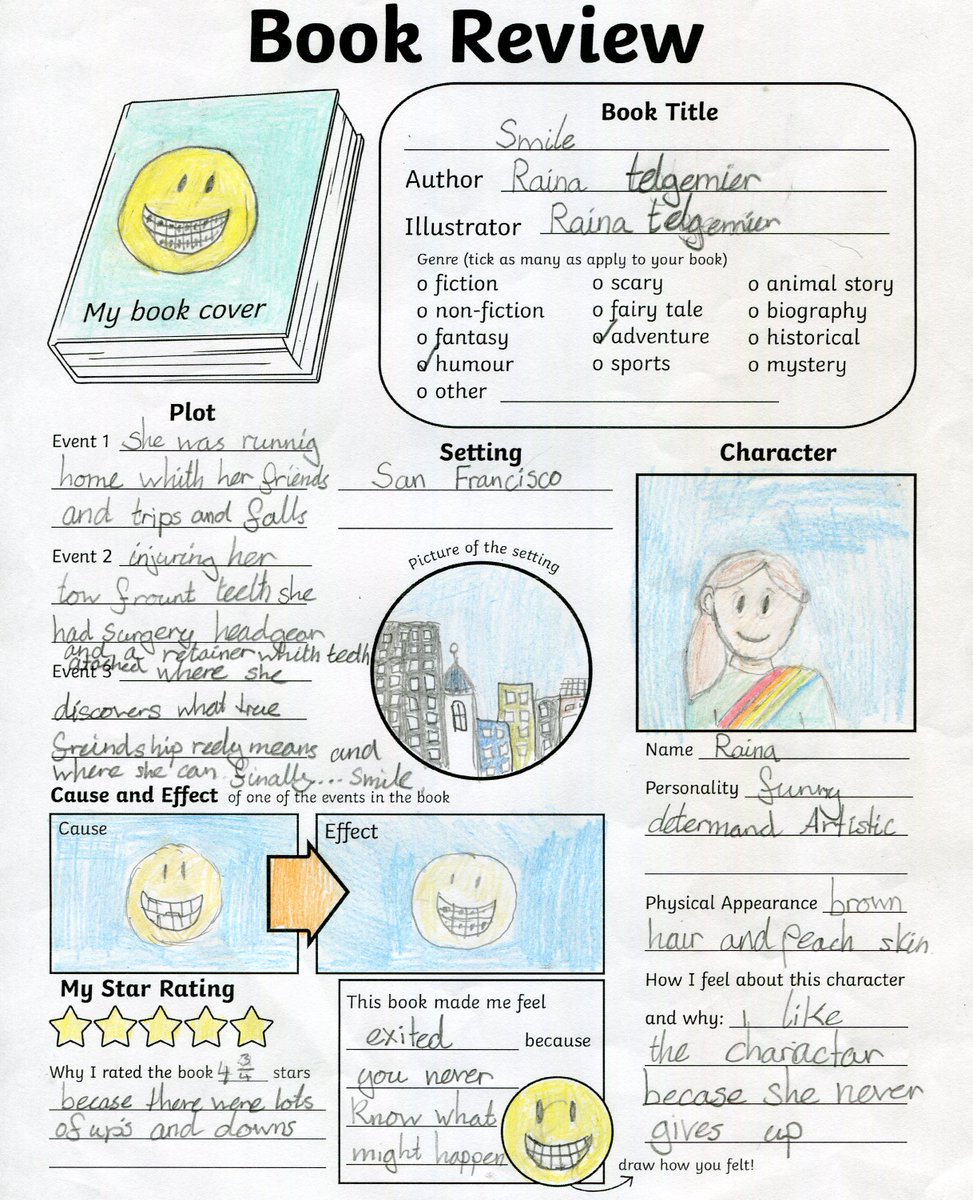 Book Review
My book cover
Book Title
Smile
Author Raina telgemier
Illustrator Raina telgemier
Genre (tick as many as apply to your book)
o fiction
o non-fiction
o fantasy
o humour
o other
o scary
o fairy tale
o adventure
o sports
o animal story
o biography
o historical
o mystery
Plot
Event 1 She was runnig
home whith her friends
and trips and falls
Event 2 injuring her
tow frount teeth she
had surgery headgear
and a retainer whith teeth
atached
Event 3 where she
discovers what true
freindship reely means and
where she can finally... smile
Setting
San Francisco
Picture of the setting
Character
Name Raina
Personality funny
determand Artistic
Physical Appearance brown
hair and peach skin
How I feel about this character
and why: I like
the charactour
becase she never
gives up
Cause and Effect of one of the events in the book
Cause
Effect
My Star Rating
Why I rated the book 4 3/4 stars
becase there were lots
of up's and downs
This book made me feel
exited because
you never
Know what
might happen
draw how you felt!